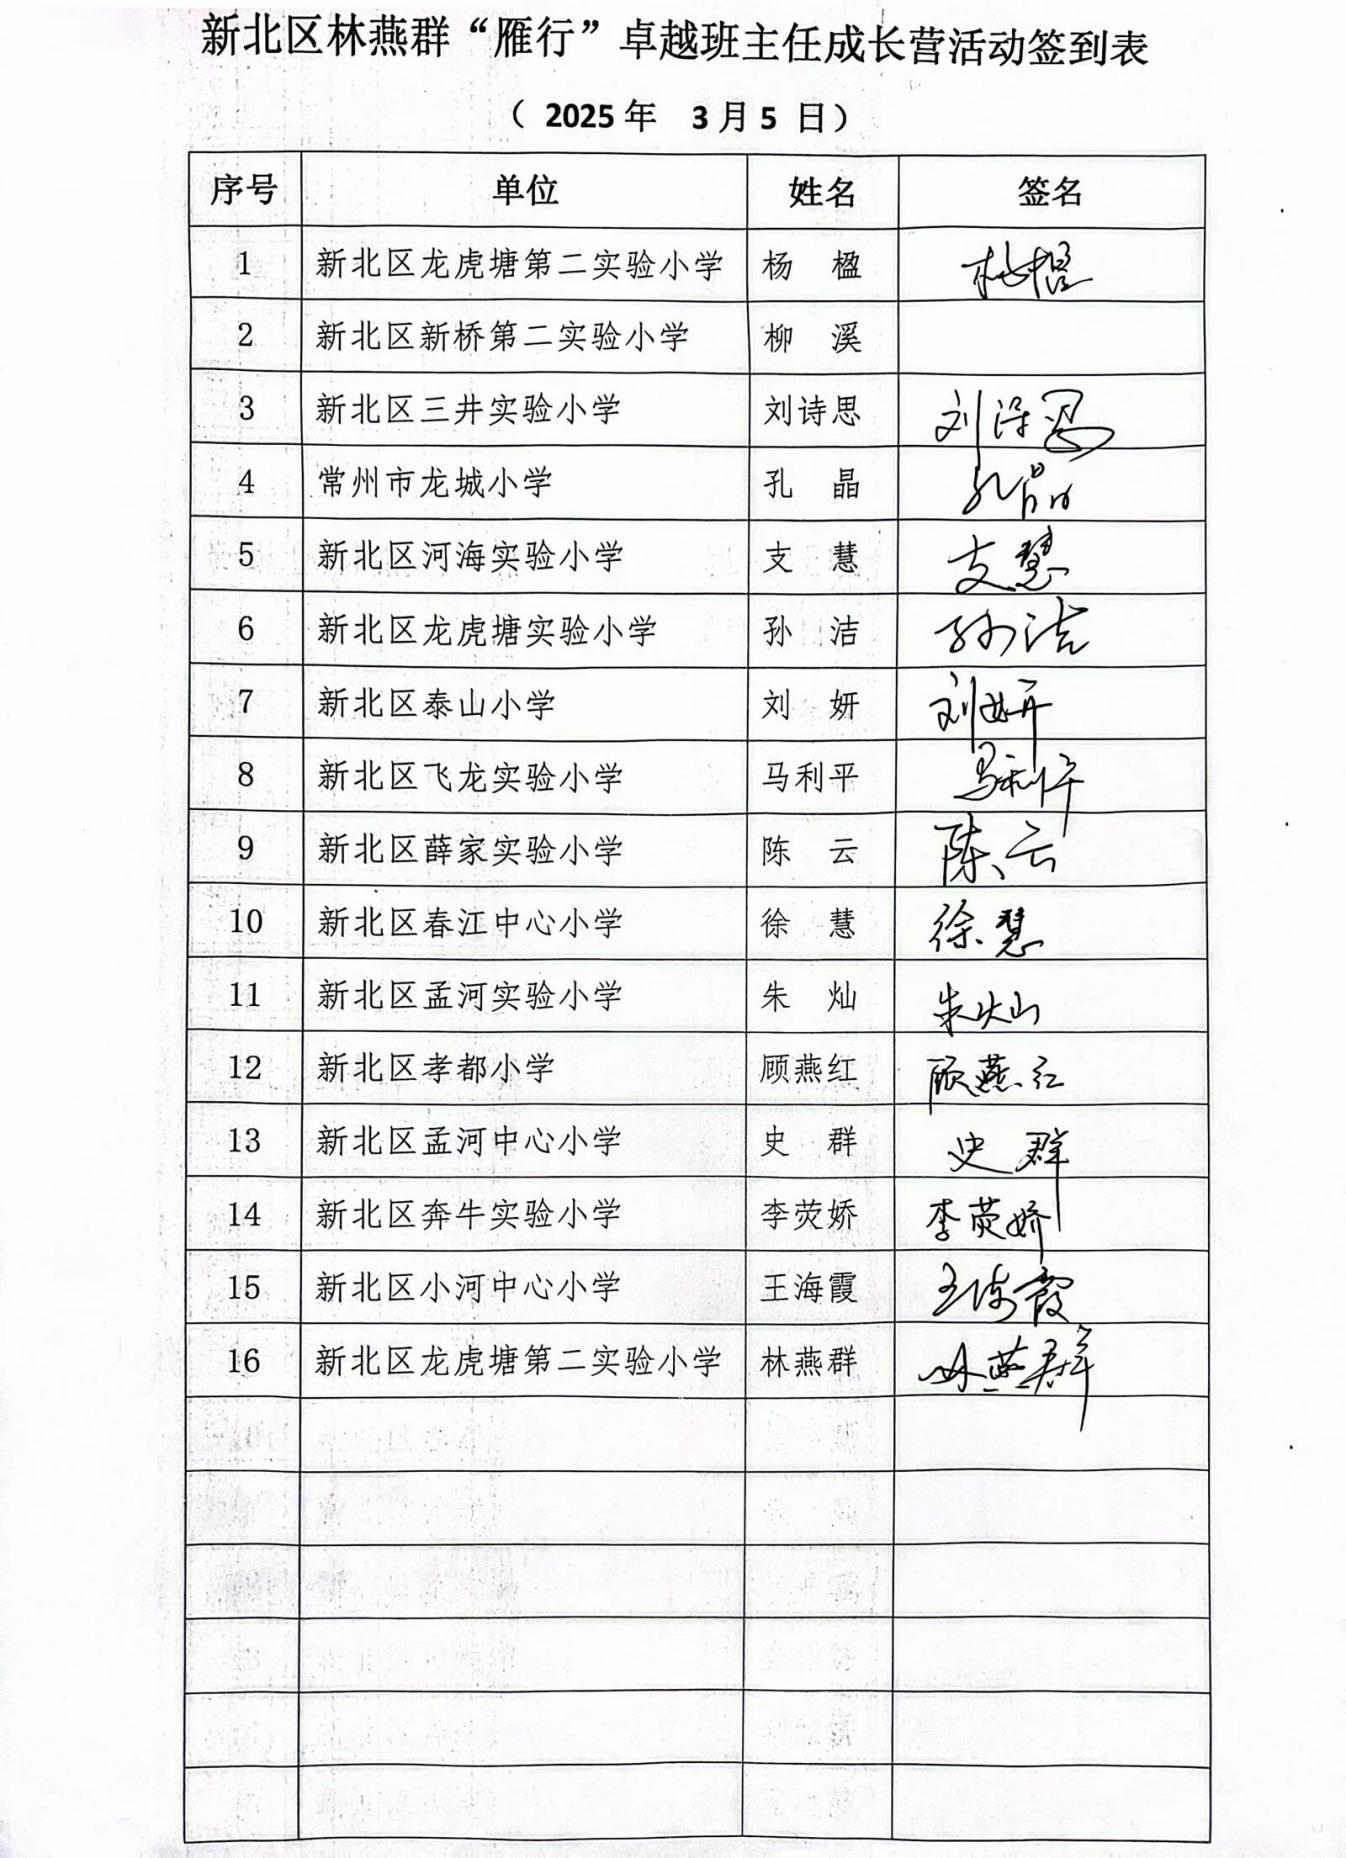 新北区林燕群“雁行”卓越班主任成长营活动签到表
（ 2025年 3月5 日）
序号 单位 姓名 签名
1 新北区龙虎塘第二实验小学 杨 楹 杨楹
2 新北区新桥第二实验小学 柳 溪
3 新北区三井实验小学 刘诗思 刘诗思
4 常州市龙城小学 孔 晶 孔晶
5 新北区河海实验小学 支 慧 支慧
6 新北区龙虎塘实验小学 孙 洁 孙洁
7 新北区泰山小学 刘 妍 刘妍
8 新北区飞龙实验小学 马利平 马利平
9 新北区薛家实验小学 陈 云 陈云
10 新北区春江中心小学 徐 慧 徐慧
11 新北区孟河实验小学 朱 灿 朱灿
12 新北区孝都小学 顾燕红 顾燕红
13 新北区孟河中心小学 史 群 史群
14 新北区奔牛实验小学 李荧娇 李荧娇
15 新北区小河中心小学 王海霞 王海霞
16 新北区龙虎塘第二实验小学 林燕群 林燕群